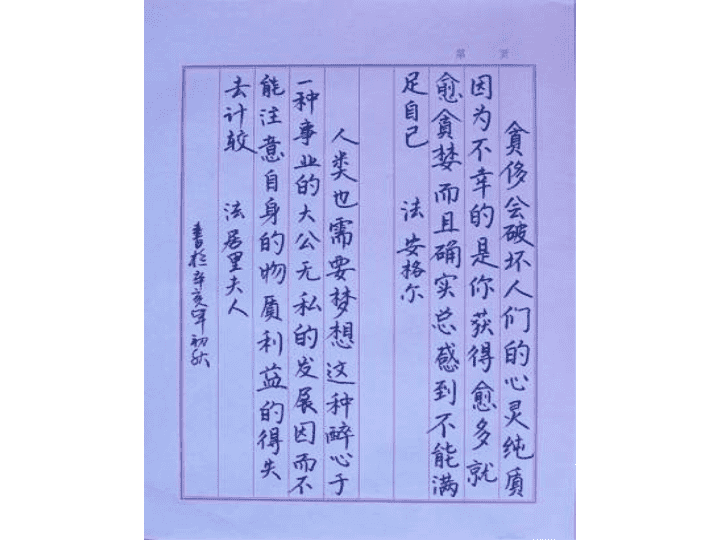 第 页
贪侈会破坏人们的心灵纯质
因为不幸的是你获得愈多就
愈贪婪而且确实总感到不能满
足自己 法 安格尔
人类也需要梦想这种醉心于
一种事业的大公无私的发展因而不
能注意自身的物质利益的得失
去计较 法 居里夫人
书于辛亥年初秋